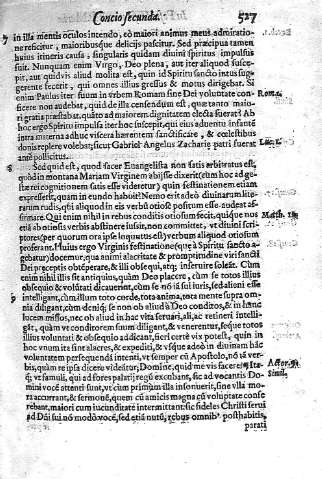 Concio secunda. 527
in illa mentis oculos intendo, eò maiori animus meus admiratio-
ne reficitur, maioribusque delicijs pascitur. Sed præcipua tamen
huius itineris causa, singularis quidam diuini spiritus impulsus
fuit. Nunquam enim Virgo, Deo plena, aut iter aliquod susce-
pit, aut quiduis aliud molita est, quin id Spiritu sancto intus sug-
gerente fecerit, qui omnes illius gressus & motus dirigebat. Si
enim Paulus iter suum in vrbem Romam sine Dei voluntate con-
ficere non audebat, quid de illa censendum est, quæ tanto maio-
ri gratia præstabat, quàto ad maiorem dignitatem electa fuerat? Ab
hoc ergo Spiritu impulsa iter hoc suscepit, qui eius aduentu infantē
intra materna adhuc viscera hærentem sanctificare, & cælestibus
donis replere volebat; sicut Gabriel Angelus Zachariæ patri fuerat
antè pollicitus.
Rom. 1.
Luc. 1.
Sed quid est, quod sacer Euangelista non satis arbitratus est,
quòd in montana Mariam Virginem abijsse dixerit (etsi hoc ad ge-
stæ rei cognitionem satis esse videretur) quin festinationem etiam
expresserit, quam in eundo habuit? Nemo erit adeò diuinarum lite-
rarum rudis, qui aliquid in eis verbis otiosè positum esse audeat af-
firmare. Qui enim nihil in rebus conditis otiosum fecit, quique nos
etiā ab otiosis verbis abstinere iussit, non committet, vt diuini scri-
ptores per quorum ora ipse loquutus est) verbum aliquod otiosum
proferant. Huius ergo Virginis festinatione (quæ à Spiritu sancto a-
gebatur) docemur, qua animi alacritate & promptitudine viri sancti
Dei præceptis obtemperare, & illi obsequi, atque inseruire soleāt. Cùm
enim nihil illis sit antiquius, quàm Deo placere, cùm se totos illius
obsequio & volūtati dicauerint, cùm se nō iā sui iuris, sed alieni esse
intelligant, cùm illum toto corde, tota anima, tota mente supra om-
nia diligant, cùm deniq; se non ob aliud à Deo conditos, & in hanc
lucem missos, nec ob aliud in hac vita seruari, ali, ac retineri intelli-
gāt, quàm vt conditorem suum diligant, & venerentur, seque totos
illius volūtati & obsequio addicant, fieri certè vix potest, quin in
hoc vnum ita sint alacres, & expediti, & vsque adeò in diuinam hāc
voluntatem persequendā intenti, vt semper cū Apostolo, nō tā ver-
bis, quàm re ipsa dicere videātur, Domine, quid me vis facere? Ita-
q; vt famuli, qui ad fores palatij regū excubant, sic ad vocantis Do-
mini vocē attenti sunt, vt cùm primùm illa insonuerit, sine vlla mo-
ra accurrant, & sermonē, quem cū amicis magna cū voluptate confe-
rebant, maiori cum iucunditate intermittant: sic fideles Christi serui
ad Dñi sui nō modò vocē, sed etiā nutū, rebus omnib' posthabitis,
parati
Math. 12.
Actor. 9.
Simil.